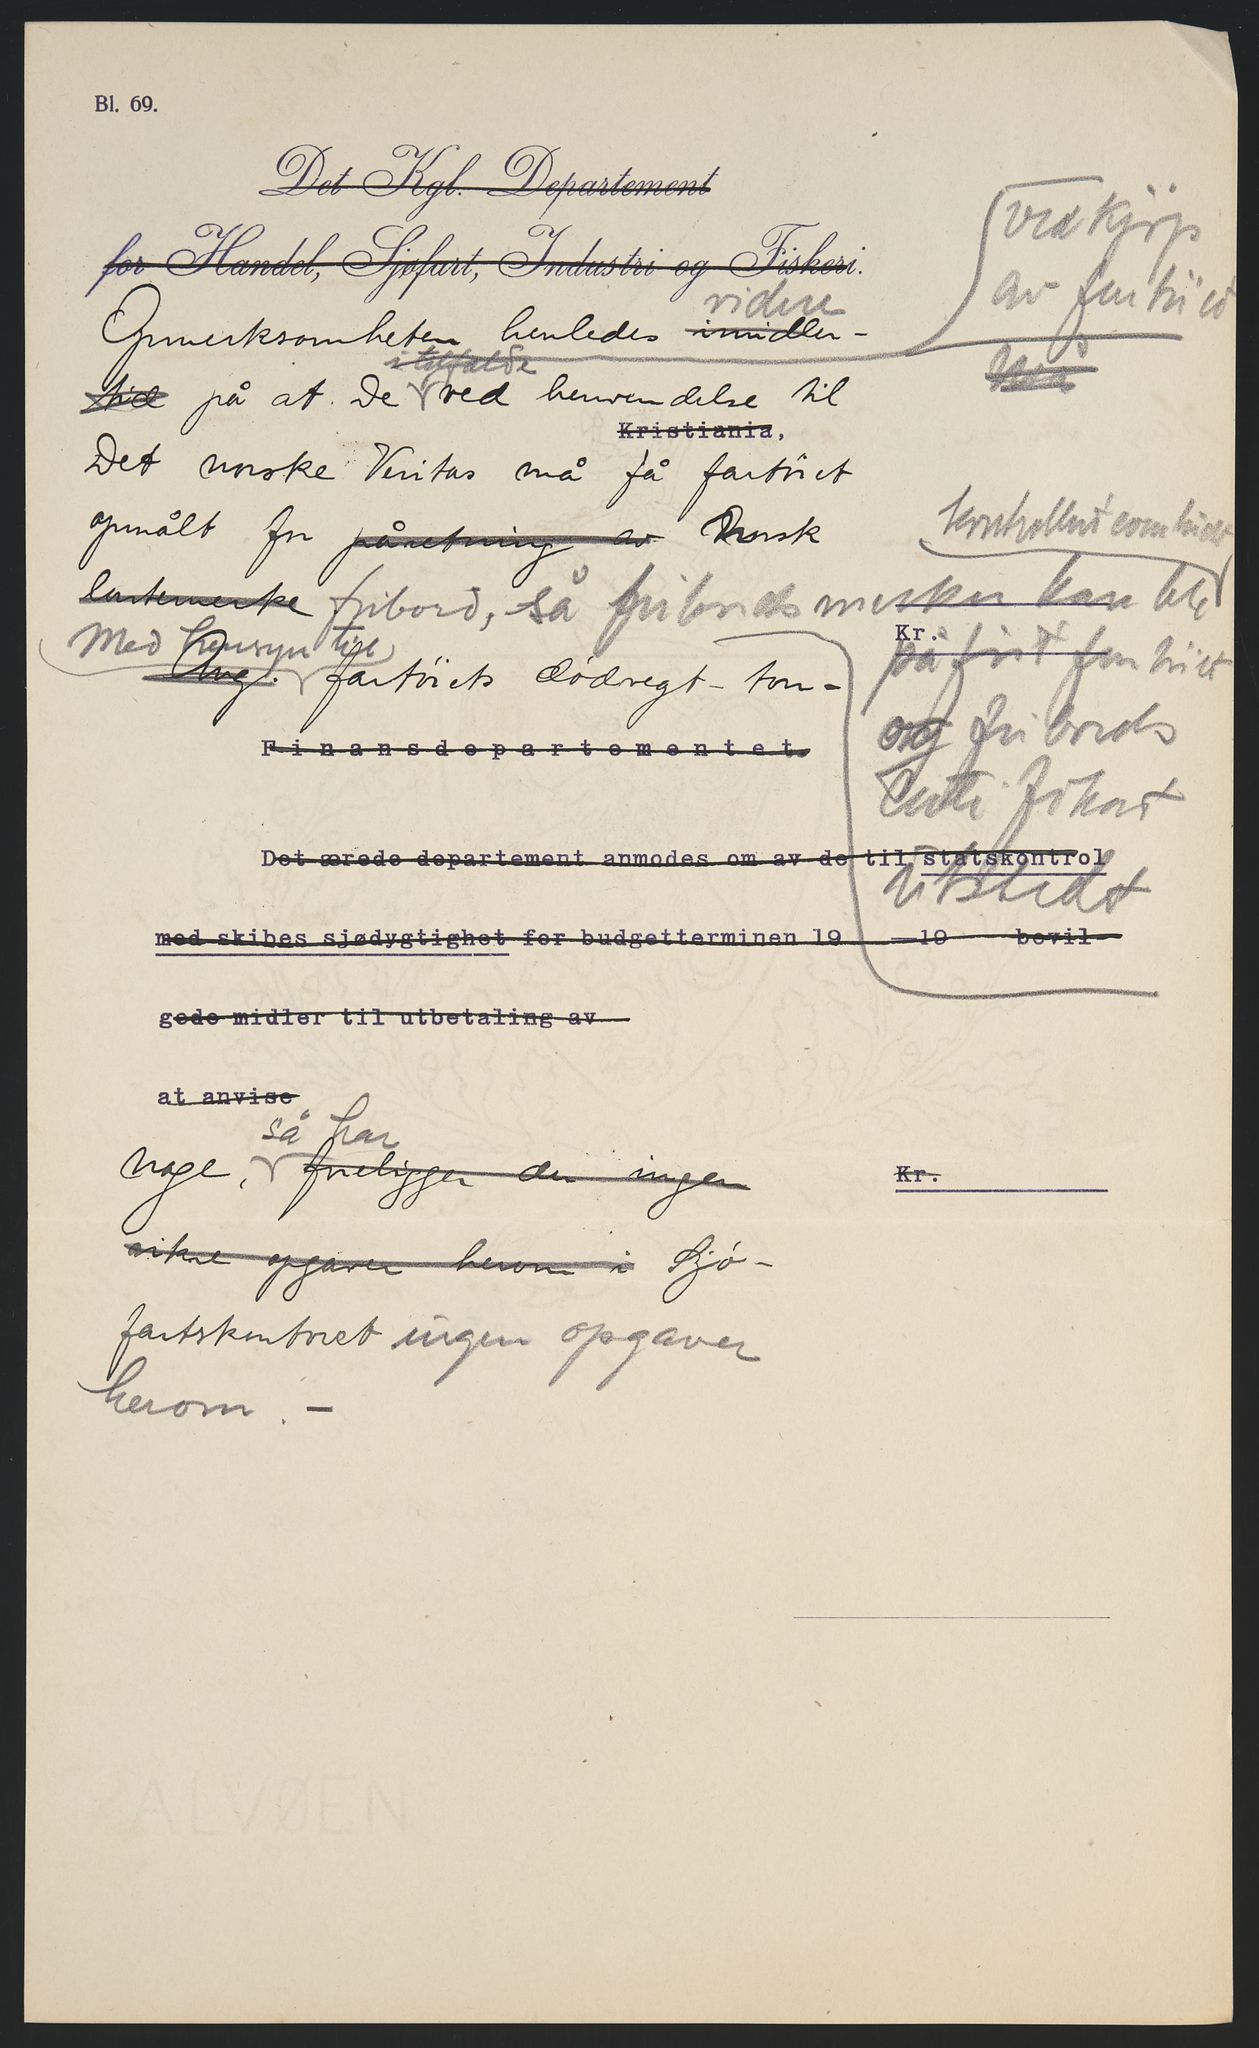 Bl. 69.
Det Kgl. Departement
for Handel, Sjøfart, Industri og Fiskeri.
ved kjøp
av fartöiet
videre
Opmerksomheten henledes imidler-
i tilfælde
tid på at De ved henvendelse til
Kristiania,
Det norske Veritas må få fartöiet
opmålt for påsetning av Norsk
kontrollert
lastemerke fribord, så fribordsmerker kan bli
Kr.
på fartöiet
Med hensyn til
Ang. fartöiets dödvegt-ton-
og fribords
Finansdepartementet.
certifikat
Det ærede departement anmodes om av de til statskontrol
utstedt
med skibes sjødygtighet for budgetterminen 19 —19 bevil-
gede midler til utbetaling av
at anvise
så har
nage, foreligger der ingen
Kr.
sikre opgaver herom i Sjö-
fartskontoret ingen opgaver
herom. —
ALVØEN